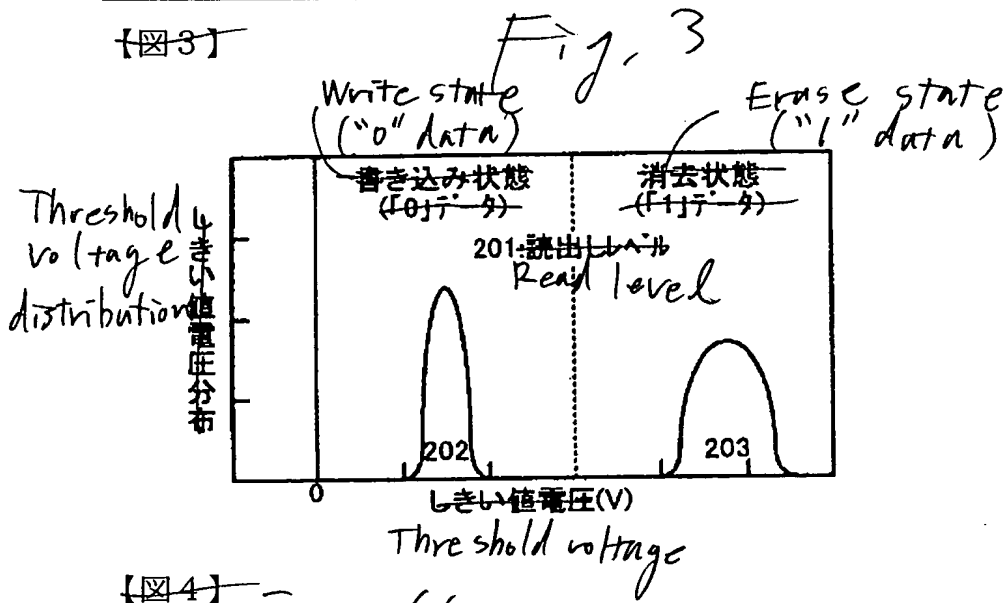 【図3】
Fig. 3
Write state
("0" data)
Erase state
("1" data)
書き込み状態
(「0」データ)
消去状態
(「1」データ)
Threshold
voltage
distribution
しきい値電圧分布
201:読出しレベル
Read level
202
203
0
しきい値電圧(V)
Threshold voltage
【図4】